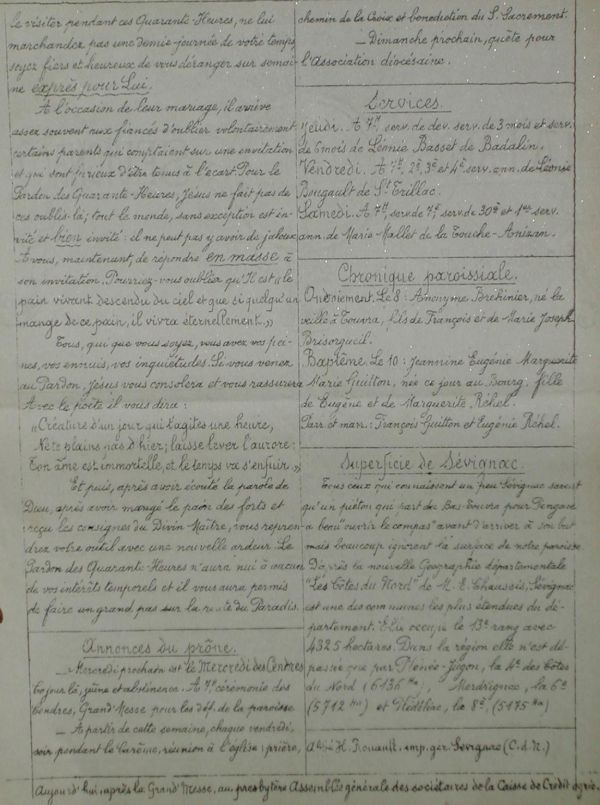 le visiter pendant ces Quarante-Heures, ne lui
marchandez pas une demie-journée de votre temps
soyez fiers et heureux de vous déranger sur semai-
ne exprès pour Lui.
A l'occasion de leur mariage, il arrive
assez souvent aux fiancés d'oublier volontairement
certains parents qui comptaient sur une invitation
et qui sont furieux d'être tenus à l'écart. Pour le
Pardon des Quarante-Heures, Jésus ne fait pas de
ces oublis-là; tout le monde, sans exception est in-
vité et bien invité: il ne peut pas y avoir de jaloux.
A vous, maintenant, de répondre en masse à
son invitation. Pourriez-vous oublier qu'Il est «le
pain vivant descendu du ciel et que si quelqu'un
mange de ce pain, il vivra éternellement.»
Tous, qui que vous soyez, vous avez vos pei-
nes, vos ennuis, vos inquiétudes. Si vous venez
au Pardon, Jésus vous consolera et vous rassurera
Avec le poète il vous dira:
«Créature d'un jour qui t'agites une heure,
Ne te plains pas d'hier; laisse lever l'aurore:
Ton âme est immortelle, et le temps va s'enfuir.»
Et puis, après avoir écouté la parole de
Dieu, après avoir mangé le pain des forts et
reçu les consignes du Divin-Maître, vous repren-
drez votre outil avec une nouvelle ardeur. Le
Pardon des Quarante-Heures n'aura nui à aucun
de vos intérêts temporels et il vous aura permis
de faire un grand pas sur la route du Paradis.
Annonces du prône.
— Mercredi prochain est le Mercredi des Cendres
Ce jour là, jeûne et abstinence. A cérémonie des
Cendres, Grand'Messe pour les déf. de la paroisse
— A partir de cette semaine, chaque vendredi
soir pendant le Carême, réunion à l'église: prière,
chemin de la Croix et bénédiction du S. Sacrement.
— Dimanche prochain, quête pour
l'Association diocésaine.
Services.
Jeudi. A 7h, serv. de dev. serv. de 3 mois et serv.
de 6 mois de Léonie Basset de Badalin.
Vendredi. A 7h, 2e, 3e et 4e serv. ann. de Léonie
Bougault de St Trillac.
Samedi. A 7h, serv. de 7e, serv. de 30e et 1er serv.
ann. de Marie Mallet de la Touche-Anizan.
Chronique paroissiale.
Ondoiement. Le 8: Anonyme Bréhinier, né la
veille à Touvra, fils de François et de Marie Joseph
Brésorgueil.
Baptême. Le 10: Jeannine Eugénie Marguerite
Marie Guitton, née ce jour au Bourg, fille
de Eugène et de Marguerite Réhel.
Parr. et marr. François Guitton et Eugénie Réhel.
Superficie de Sévignac.
Tous ceux qui connaissent un peu Sévignac savent
qu'un piéton qui part de Bas-Touvra pour Pengavé
a beau "ouvrir le compas" avant d'arriver à son but
mais beaucoup ignorent la surface de notre paroisse
D'après la nouvelle Géographie départementale
"Les Côtes du Nord" de M. E. Chausseis, Sévignac
est une des communes les plus étendues du dé-
partement. Elle occupe le 13e rang avec
4325 hectares. Dans la région elle n'est dé-
passée que par Plénée-Jugon, la 4e des Côtes
du Nord (6136 Ha), Merdrignac, la 6e
(5712 Ha) et Plédéliac, la 8e, (5175 Ha)
Abbé H. Rouault, imp. ger. Sévignac (C.d.N.)
Aujourd'hui, après la Grand'Messe, au presbytère Assemblée générale des sociétaires de la Caisse de Crédit agric.